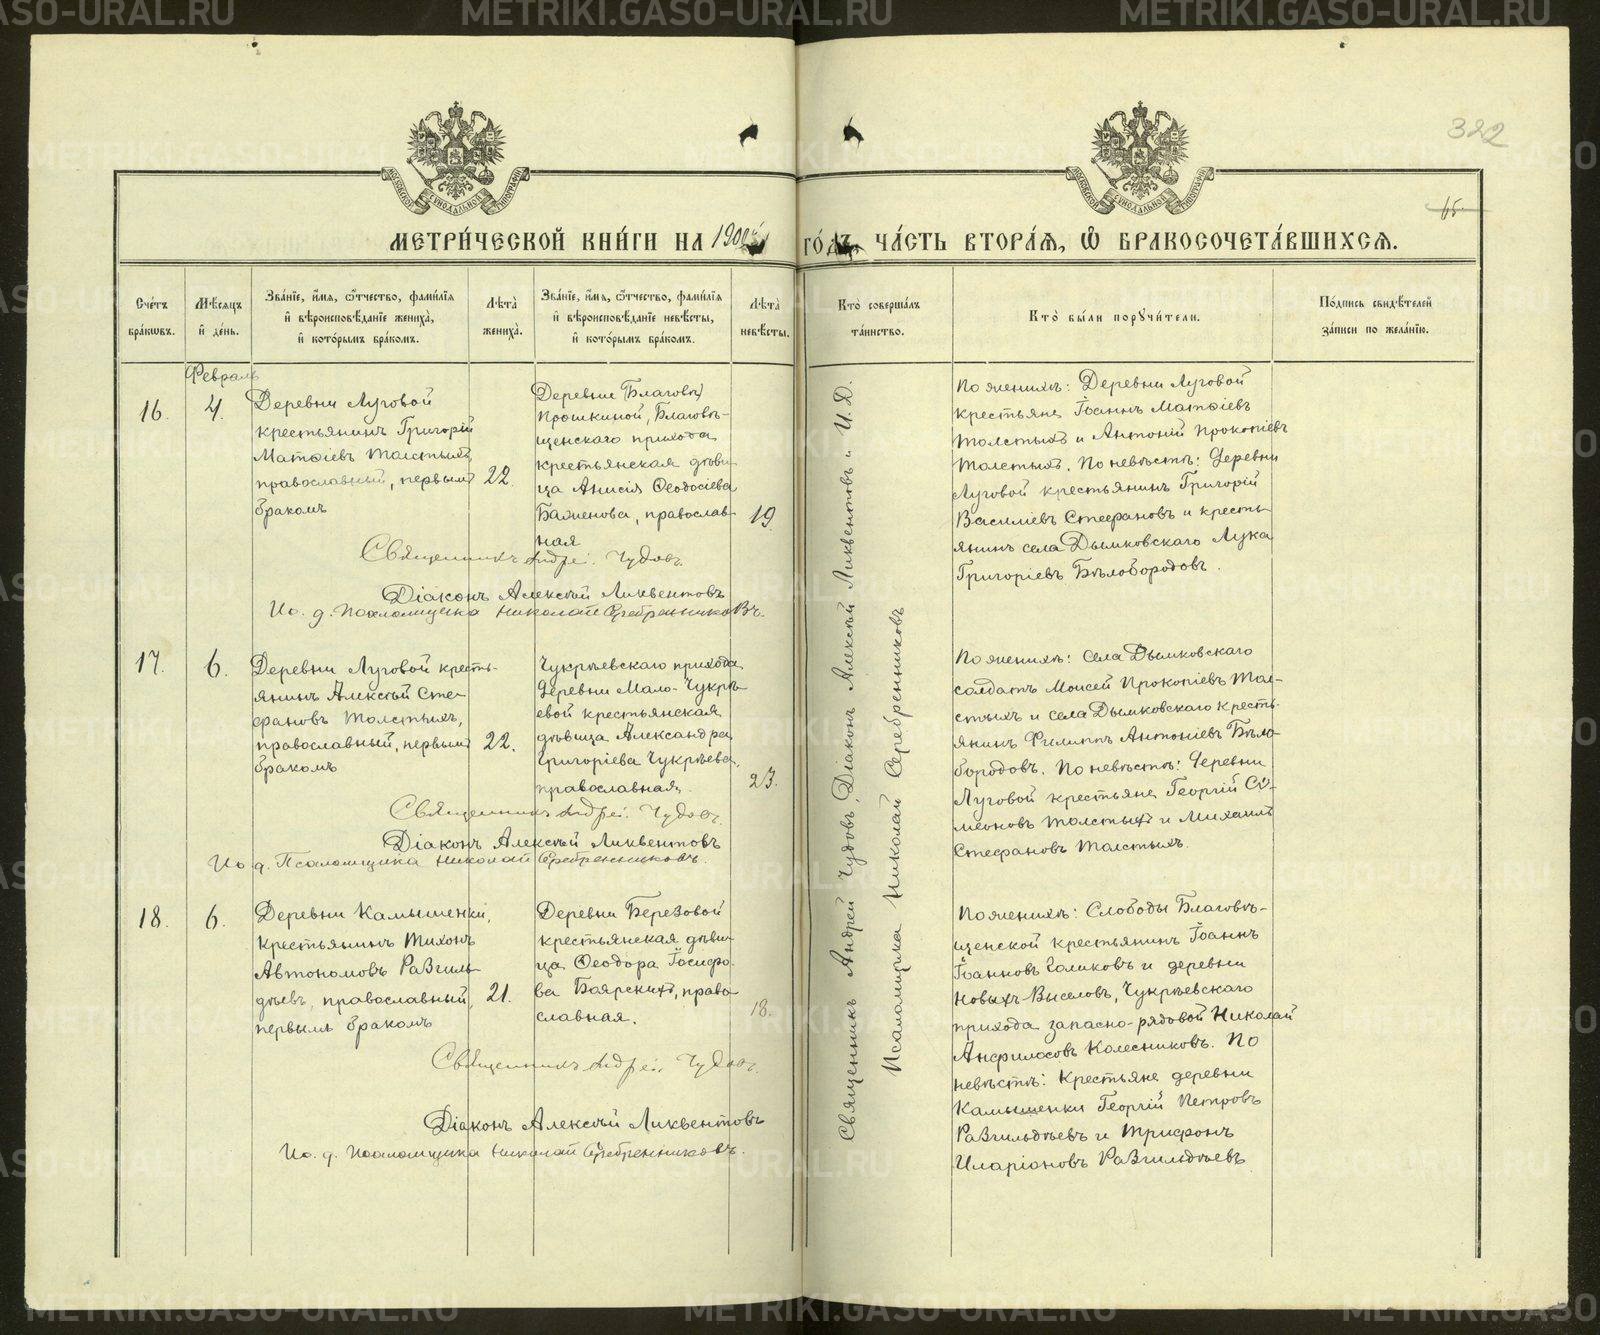 322
65.
МЕТРИЧЕСКОЙ КНИГИ НА 190 ГОДЪ, ЧАСТЬ ВТОРАЯ, Ѡ БРАКОСОЧЕТАВШИХСЯ.
Счетъ браковъ.
Мѣсяцъ и день.
Званіе, имя, отчество, фамилія и вѣроисповѣданіе жениха, и которымъ бракомъ.
Лѣта жениха.
Званіе, имя, отчество, фамилія и вѣроисповѣданіе невѣсты, и которымъ бракомъ.
Лѣта невѣсты.
Кто совершалъ таинство.
Кто были поручители.
Подпись свидѣтелей записи по желанію.
Февраль
16.
4.
Деревни Луговой
крестьянинъ Григорій
Матѳіевъ Толстыхъ,
православный, первымъ
бракомъ
22.
Деревни
Прошкиной, Благовѣ-
щенскаго прихода
крестьянская дѣви-
ца Анисія Ѳеодосіева
Баженова, православ-
ная
19.
Священникъ Андрей Чудовъ.
Діаконъ Алексѣй Ликвентовъ
Ис. д. Псаломщика Николай Серебренниковъ.
По женихѣ: Деревни Луговой
крестьяне Іоаннъ Матѳіевъ
Толстыхъ и Антоній Прокопіевъ
Толстыхъ. По невѣстѣ: Деревни
Луговой крестьянинъ Григорій
Василіевъ Стефановъ и кресть-
янинъ села Дымковскаго Лука
Григоріевъ Бѣлобородовъ.
17.
6.
Деревни Луговой кресть-
янинъ Алексѣй Сте-
фановъ Толстыхъ,
православный, первымъ
бракомъ
22.
Чукрѣевскаго прихода
деревни Мало-Чукрѣ-
евой крестьянская
дѣвица Александра
Григоріева Чукрѣева,
православная.
23.
Священникъ Андрей Чудовъ.
Діаконъ Алексѣй Ликвентовъ
Ис. д. Псаломщика Николай Серебренниковъ.
По женихѣ: села Дымковскаго
солдатъ Моисей Прокопіевъ Тол-
стыхъ и села Дымковскаго кресть-
янинъ Филиппъ Антоніевъ Бѣло-
бородовъ. По невѣстѣ: Деревни
Луговой крестьяне Георгій Сѵ-
меоновъ Толстыхъ и Михаилъ
Стефановъ Толстыхъ.
18.
6.
Деревни Камышенки,
крестьянинъ Тихонъ
Автономовъ Разгиль-
дѣевъ, православный,
первымъ бракомъ
21.
Деревни Березовой
крестьянская дѣви-
ца Ѳеодора Іосифо-
ва Боярскихъ, право-
славная.
18.
Священникъ Андрей Чудовъ.
Діаконъ Алексѣй Ликвентовъ
Ис. д. Псаломщика Николай Серебренниковъ.
По женихѣ: Слободы Благовѣ-
щенской крестьянинъ Іоаннъ
Іоанновъ Голиковъ и деревни
Новыхъ-Выселовъ, Чукрѣевскаго
прихода запасно-рядовой Николай
Анфилосовъ Колесниковъ. По
невѣстѣ: крестьяне деревни
Камышенки Георгій Петровъ
Разгильдѣевъ и Трифонъ
Иларіоновъ Разгильдѣевъ
Священникъ Андрей Чудовъ, Діаконъ Алексѣй Ликвентовъ и И. Д.
Псаломщика Николай Серебренниковъ
METRIKI.GASO-URAL.RU